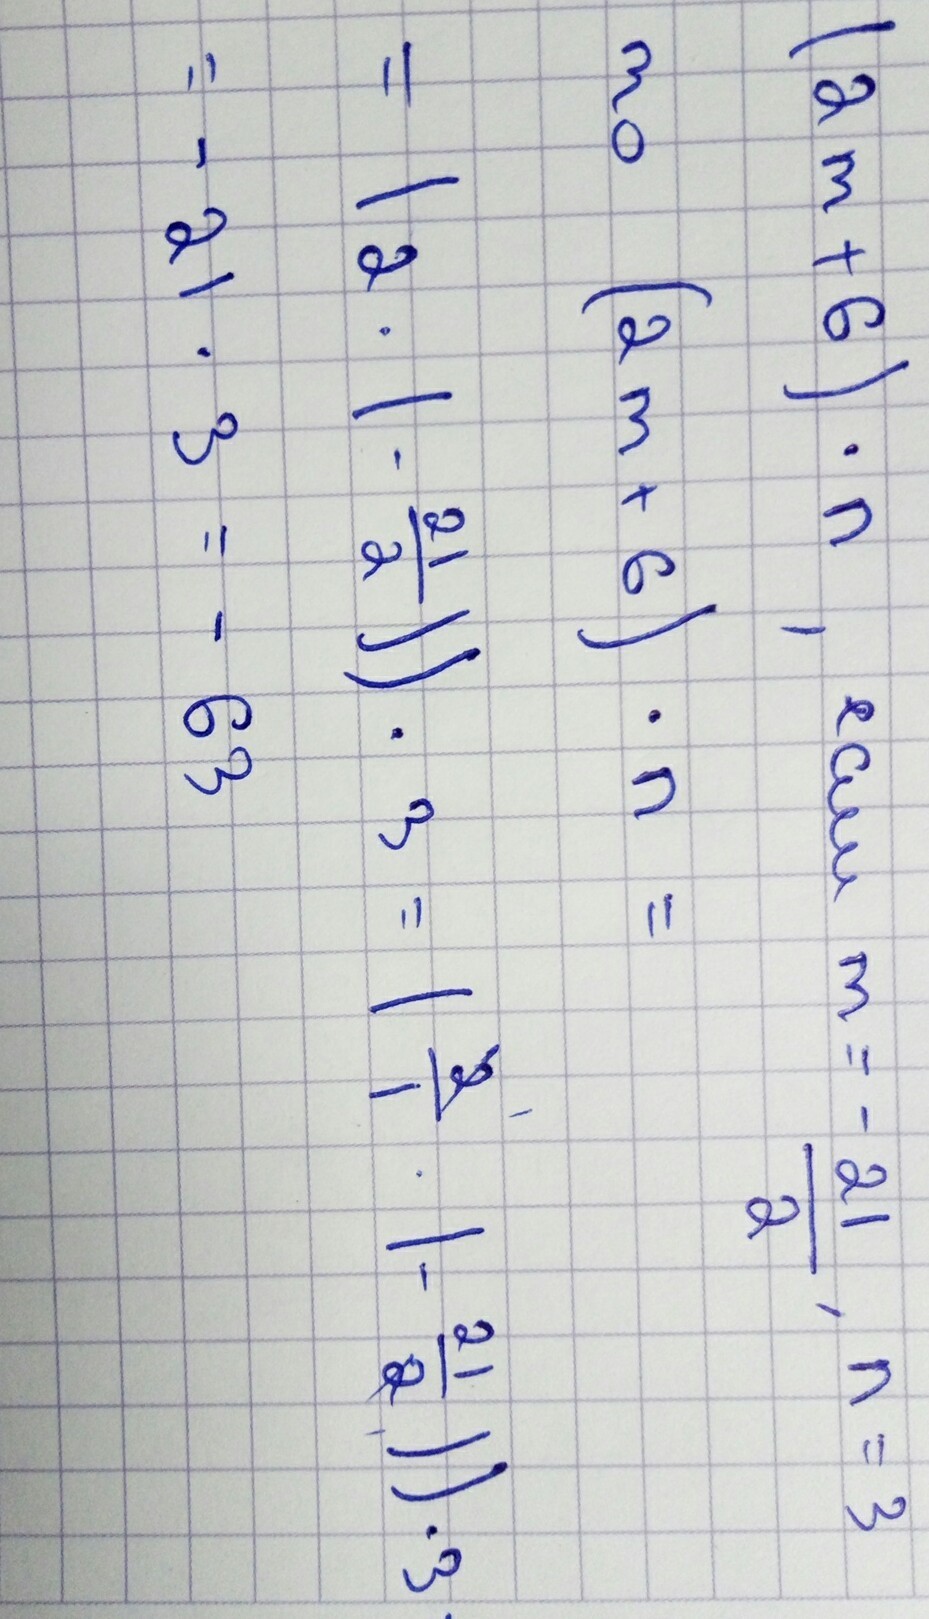 (2m+6)·n, если m=-21/2, n=3
то (2m+6)·n=
=(2·(-21/2))·3=(2/1·(-21/2))·3
=-21·3=-63